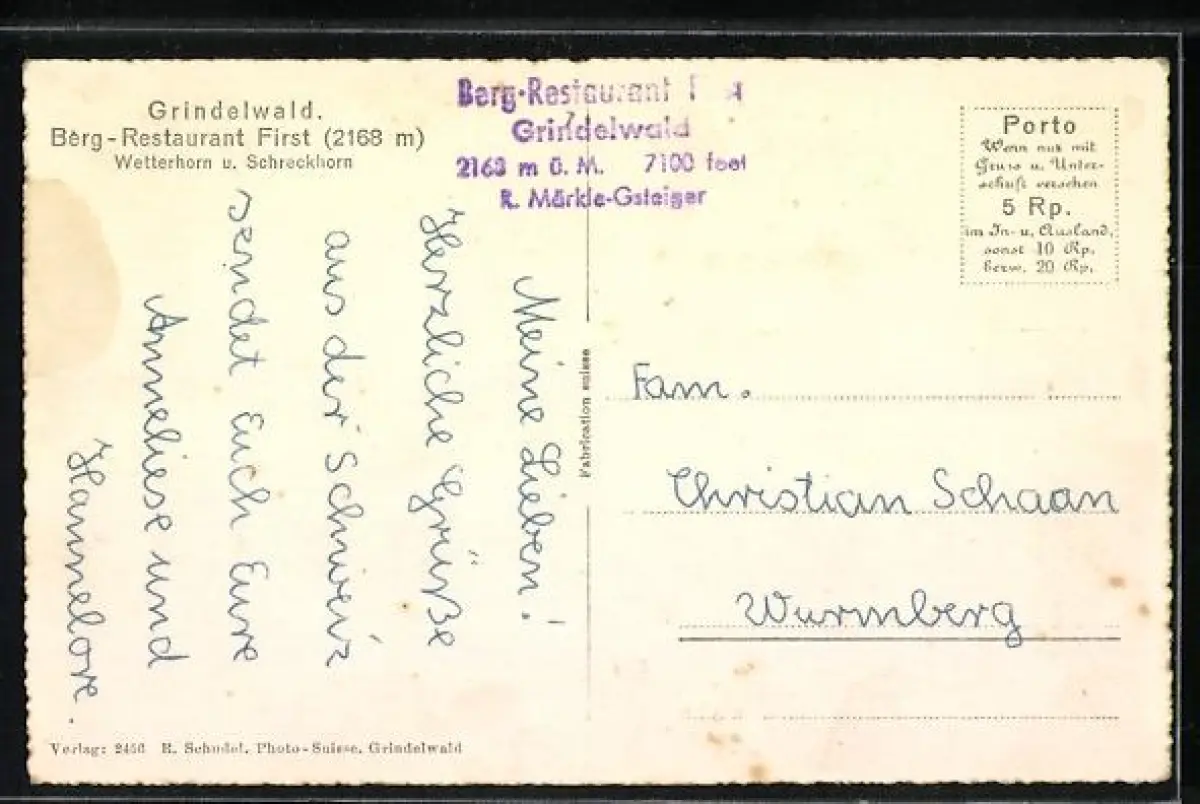 Grindelwald.
Berg-Restaurant First (2168 m)
Wetterhorn u. Schreckhorn
Berg-Restaurant
Grindelwald
2168 m ü. M. 7100 feet
R. Märkle-Gsteiger
Porto
Wenn nur mit
Gruss u. Unter-
schrift versehen
5 Rp.
im In- u. Ausland,
sonst 10 Rp.
bezw. 20 Rp.
Meine Lieben!
Herzliche Grüße
aus der Schweiz
sendet Euch Eure
Anneliese und
Hannelore.
Fabrication suisse
Fam.
Christian Schaan
Wurmberg
Verlag: 2456 R. Schudel, Photo-Suisse, Grindelwald